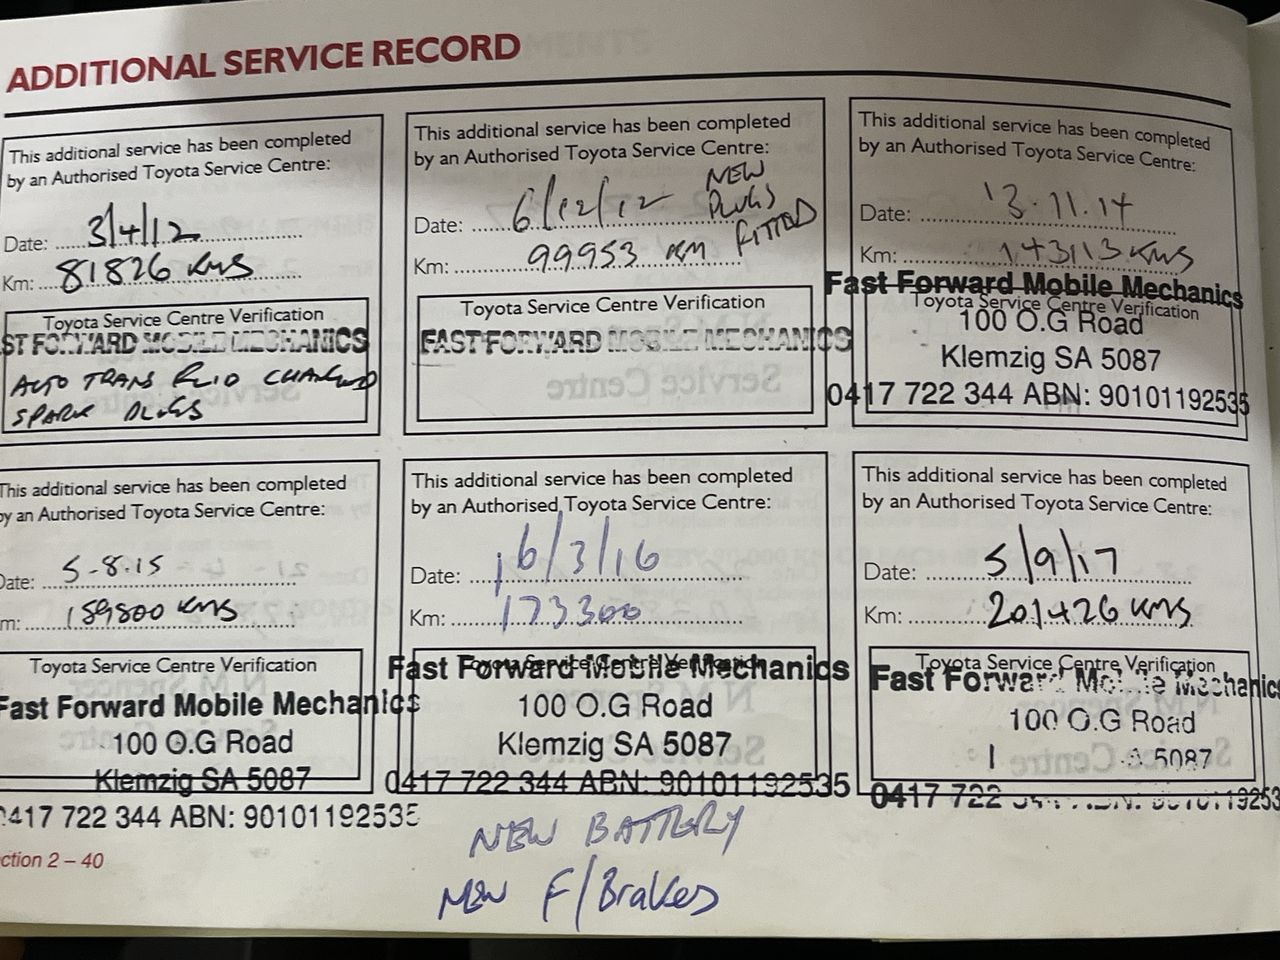 ADDITIONAL SERVICE RECORD
This additional service has been completed
by an Authorised Toyota Service Centre:
Date: 3/4/12
Km: 81826 KMS
Toyota Service Centre Verification
ST FORWARD MOBILE MECHANICS
AUTO TRANS FLUID CHANGED
SPARK PLUGS
This additional service has been completed
by an Authorised Toyota Service Centre:
NEW
PLUGS
FITTED
Date: 6/12/12
Km: 99953 KM
Toyota Service Centre Verification
FAST FORWARD MOBILE MECHANICS
This additional service has been completed
by an Authorised Toyota Service Centre:
Date: 13.11.14
Km: 143113 KMS
Fast Forward Mobile Mechanics
Toyota Service Centre Verification
100 O.G Road
Klemzig SA 5087
0417 722 344 ABN: 90101192535
This additional service has been completed
by an Authorised Toyota Service Centre:
Date: 5-8.15
m: 159800 KMS
Toyota Service Centre Verification
Fast Forward Mobile Mechanics
100 O.G Road
Klemzig SA 5087
0417 722 344 ABN: 90101192535
This additional service has been completed
by an Authorised Toyota Service Centre:
Date: 16/3/16
Km: 173300
Toyota Service Centre Verification
Fast Forward Mobile Mechanics
100 O.G Road
Klemzig SA 5087
0417 722 344 ABN: 90101192535
NEW BATTERY
NEW F/Brakes
This additional service has been completed
by an Authorised Toyota Service Centre:
Date: 5/9/17
Km: 201426 KMS
Toyota Service Centre Verification
Fast Forward Mobile Mechanics
100 O.G Road
5087
0417 722
ction 2 – 40